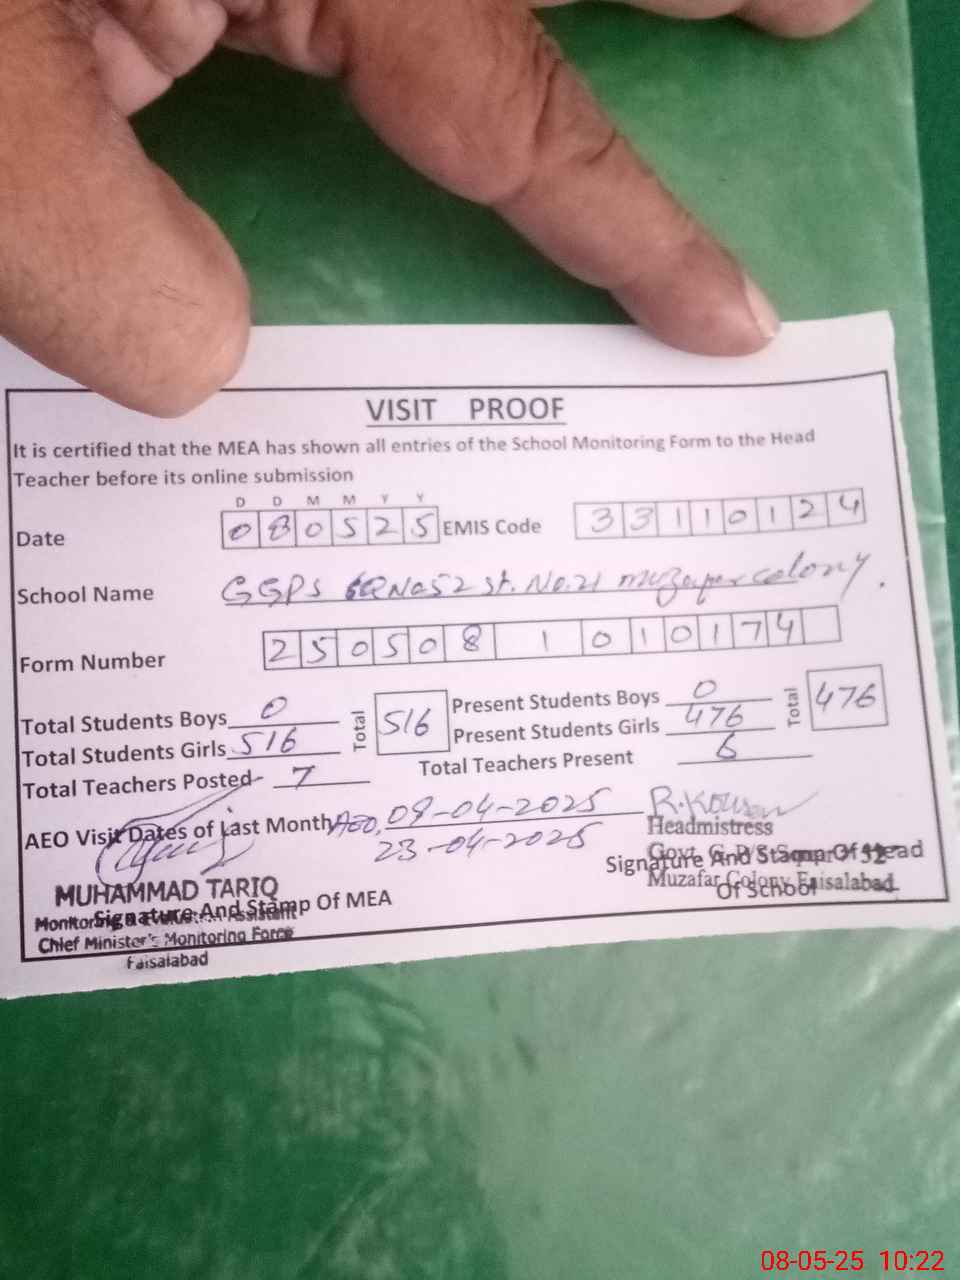 VISIT PROOF
It is certified that the MEA has shown all entries of the School Monitoring Form to the Head
Teacher before its online submission
D D M M Y Y
Date 080525 EMIS Code 33110124
School Name GGPS SQ No 52 St. No. 21 muzafar colony.
Form Number 250508 1 010174
Total Students Boys 0 Total 516 Present Students Boys 0 Total 476
Total Students Girls 516 Present Students Girls 476
Total Teachers Posted 7 Total Teachers Present 6
AEO Visit Dates of Last Month AEO, 09-04-2025
23-04-2025
R. Kousar
Headmistress
Govt. G. P/S Square 52
Signature And Stamp Of Head
Muzafar Colony Faisalabad
Of School
MUHAMMAD TARIQ
Signature And Stamp Of MEA
Monitoring & Evaluation Assistant
Chief Minister's Monitoring Force
Faisalabad
08-05-25 10:22